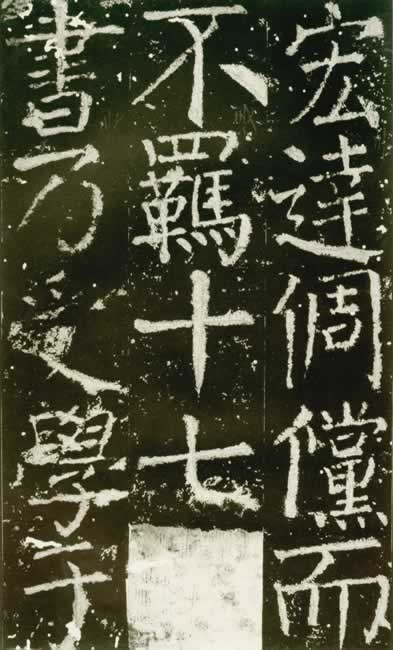 宏達倜儻而
不羈十七
書乃受學于